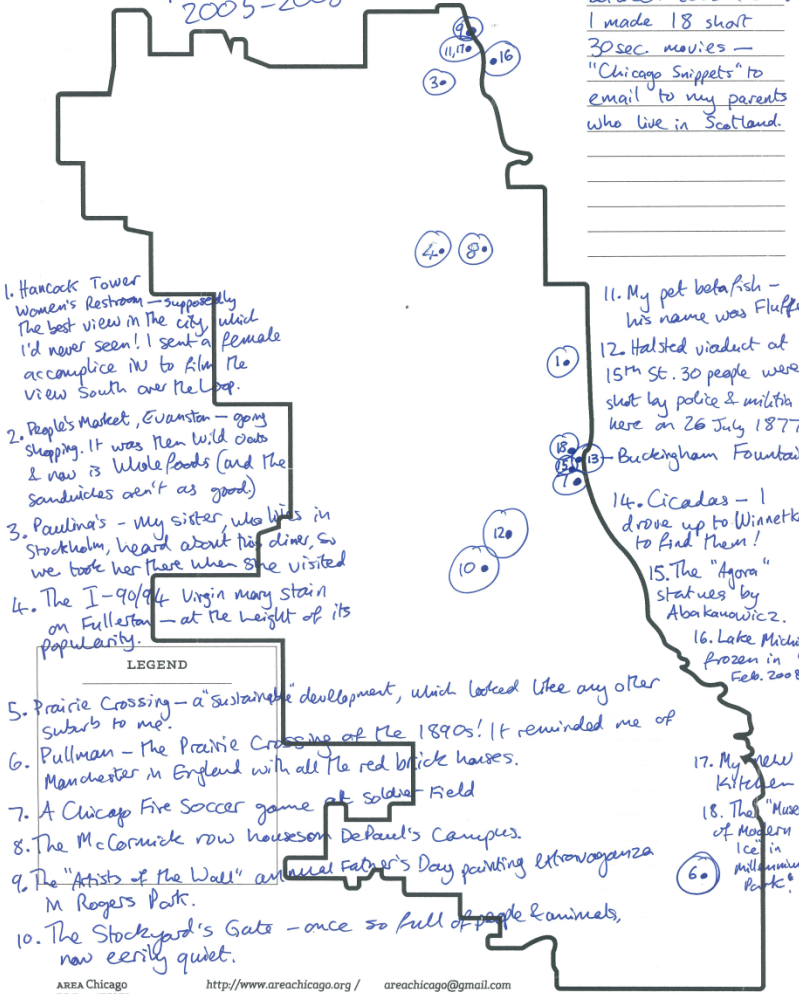 2005-2008
I made 18 short
30sec. movies —
"Chicago Snippets" to
email to my parents
who live in Scotland.
9
11,17
16
3
4
8
1
18
15
13
7
12
10
6
1. Hancock Tower
Women's Restroom — supposedly
the best view in the city, which
I'd never seen! I sent a female
accomplice in to film the
view South over the Loop.
2. People's Market, Evanston — going
shopping. It was then Wild Oats
& now is Whole Foods (and the
sandwiches aren't as good)
3. Paulina's - my sister, who lives in
Stockholm, heard about this diner, so
we took her there when she visited
4. The I-90/94 Virgin Mary Stain
on Fullerton — at the height of its
popularity.
LEGEND
5. Prairie Crossing — a "sustainable" development, which looked like any other
suburb to me.
6. Pullman — the Prairie Crossing of the 1890s! It reminded me of
Manchester in England with all the red brick houses.
7. A Chicago Fire Soccer game at Soldier Field
8. The McCormick row houses on DePaul's Campus.
9. The "Artists of the Wall" annual Father's Day painting extravaganza
in Rogers Park.
10. The Stockyard's Gate — once so full of people & animals,
now eerily quiet.
11. My pet betafish —
his name was Fluff
12. Halsted viaduct at
15th St. 30 people were
shot by police & militia
here on 26 July 1877
13 — Buckingham Fountai
14. Cicadas — I
drove up to Winnetk
to find them!
15. The "Agora"
statues by
Abakanowicz.
16. Lake Michi
frozen in
Feb. 2008
17. My new
Kitchen
18. The "Muse
of Modern
Ice" in
Millennium
Park.
AREA Chicago
http://www.areachicago.org / areachicago@gmail.com